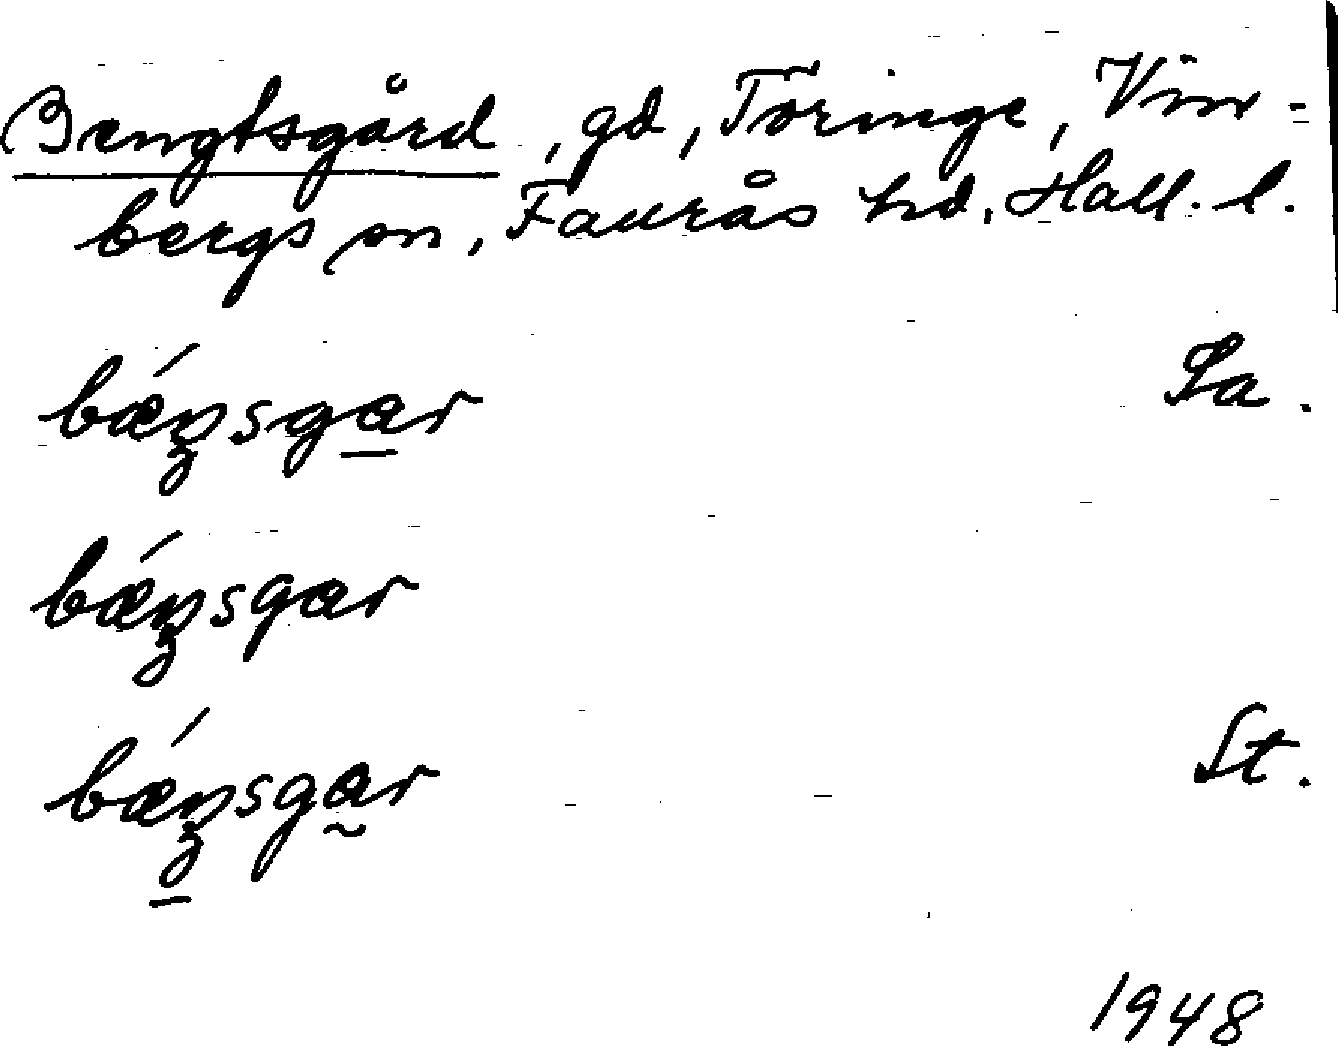 Bengtsgård, gd, Töringe, Vin-
bergs sn, Faurås hd, Hall. l.
bǽŋsgar La.
bǽŋsgar
bǽŋsgar St.
1948